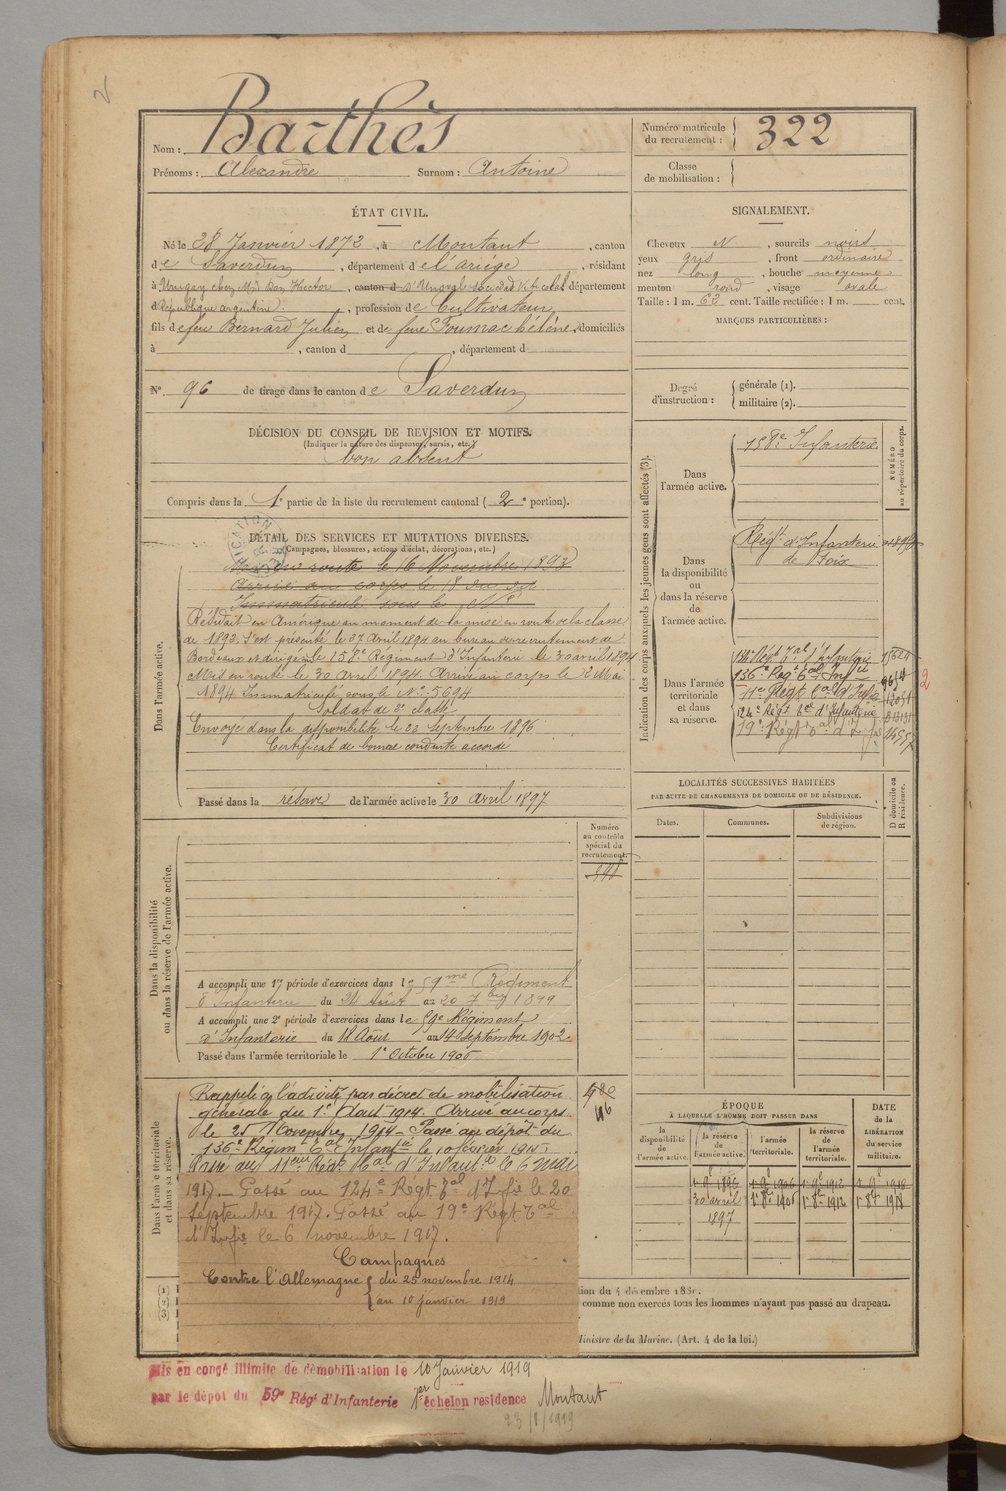 2
Nom : Barthès
Prénoms : Alexandre Surnom : Antoine
Numéro matricule du recrutement : 322
Classe de mobilisation :
ÉTAT CIVIL.
Né le 28 Janvier 1872, à Montaut, canton
de Saverdun, département de l'ariège, résidant
à Uruguay chez Mr Don Hector, canton d département
d République argentine, profession de Cultivateur
fils de feu Bernard Julien et de feue Hélène, domiciliés
à , canton d , département d
N° 96 de tirage dans le canton de Saverdun
DÉCISION DU CONSEIL DE REVISION ET MOTIFS.
(Indiquer la nature des dispenses, sursis, etc.)
bon absent
Compris dans la 1e partie de la liste du recrutement cantonal (2e portion).
SIGNALEMENT.
Cheveux N , sourcils noirs
yeux gris , front ordinaire
nez long , bouche moyenne
menton rond , visage ovale
Taille : 1 m. 62 cent. Taille rectifiée : 1 m. cent.
MARQUES PARTICULIÈRES :
Degré d'instruction : générale (1).
militaire (2).
DÉTAIL DES SERVICES ET MUTATIONS DIVERSES.
(Campagnes, blessures, actions d'éclat, décorations, etc.)
Dans l'armée active.
en route le 16 Novembre 1893
Arrivé au corps le 18 du dit
Immatriculé sous le N°
Résidait en Amérique au moment de la mise en route de la classe
de 1892. S'est présenté le 27 Avril 1894 au bureau de recrutement de
Bordeaux et dirigé le 158e Régiment d'Infanterie le 30 avril 1894
Mis en route le 30 avril 1894. Arrivé au corps le 2 Mai
1894 Immatriculé sous le N° 5694
Soldat de 2e classe
Envoyé dans la disponibilité le 22 Septembre 1896
Certificat de bonne conduite accordé
Passé dans la réserve de l'armée active le 30 avril 1897
Indication des corps auxquels les jeunes gens sont affectés (3).
NUMÉRO au répertoire du corps.
Dans l'armée active.
158e Infanterie
Dans la disponibilité ou dans la réserve de l'armée active.
Régt d'Infanterie
de Foix
Dans l'armée territoriale et dans sa réserve.
136e Regt Tal Infie
11e Régt Tal d'Infie
124e Régt Tal d'Infanterie
19e Régt Tal d'Infie
2
LOCALITÉS SUCCESSIVES HABITÉES
PAR SUITE DE CHANGEMENTS DE DOMICILE OU DE RÉSIDENCE.
D domicile ou R résidence.
Dates. Communes. Subdivisions de région.
Dans la disponibilité ou dans la réserve de l'armée active.
Numéro au contrôle spécial du recrutement.
A accompli une 1re période d'exercices dans le 59me Régiment
d'Infanterie du 24 Août au 20 7bre 1899
A accompli une 2e période d'exercices dans le 59e Régiment
d'Infanterie du 18 Août au 14 Septembre 1902.
Passé dans l'armée territoriale le 1er Octobre 1906
Dans l'armée territoriale et dans sa réserve.
Rappelé à l'activité par décret de mobilisation
générale du 1er Août 1914. Arrivé au corps
le 25 Novembre 1914 - Passé au dépôt du
136e Régimt Tal Infanie le 10 février 1915
Passé au 11eme Régt Tal d'Infantie le 6 mai
1917. - Passé au 124e Régt Tal d'Infie le 20
septembre 1917. Passé au 19e Régt Tal
d'Infie le 6 novembre 1917.
Campagnes
Contre l'Allemagne { du 25 novembre 1914
au 10 janvier 1919
980
46
ÉPOQUE
À LAQUELLE L'HOMME DOIT PASSER DANS
la disponibilité de l'armée active.
la réserve de l'armée active.
l'armée territoriale.
la réserve de l'armée territoriale.
DATE de la LIBÉRATION du service militaire.
30 avril
1897
(1)
(2)
(3)
comme non exercés tous les hommes n'ayant pas passé au drapeau.
Ministre de la Marine. (Art. 4 de la loi.)
Mis en congé illimité de démobilisation le 10 Janvier 1919
par le dépôt du 59e Régt d'Infanterie 1er échelon résidence Montaut
23/8/1919